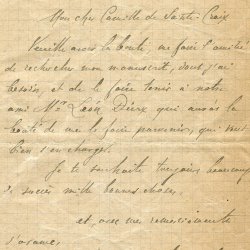 Mon cher Camille de Sainte-Croix
Veuillez avoir la bonté, me faire l'amitié
de rechercher mon manuscrit, dont j'ai
besoin, et de le faire tenir à notre
ami Mr Léon Deux qui aura la
bonté de me le faire parvenir, qui veut
bien s'en charger.
Je te souhaite toujours beaucoup
de succès mille bonnes choses,
et, avec mes remerciements
d'avance,